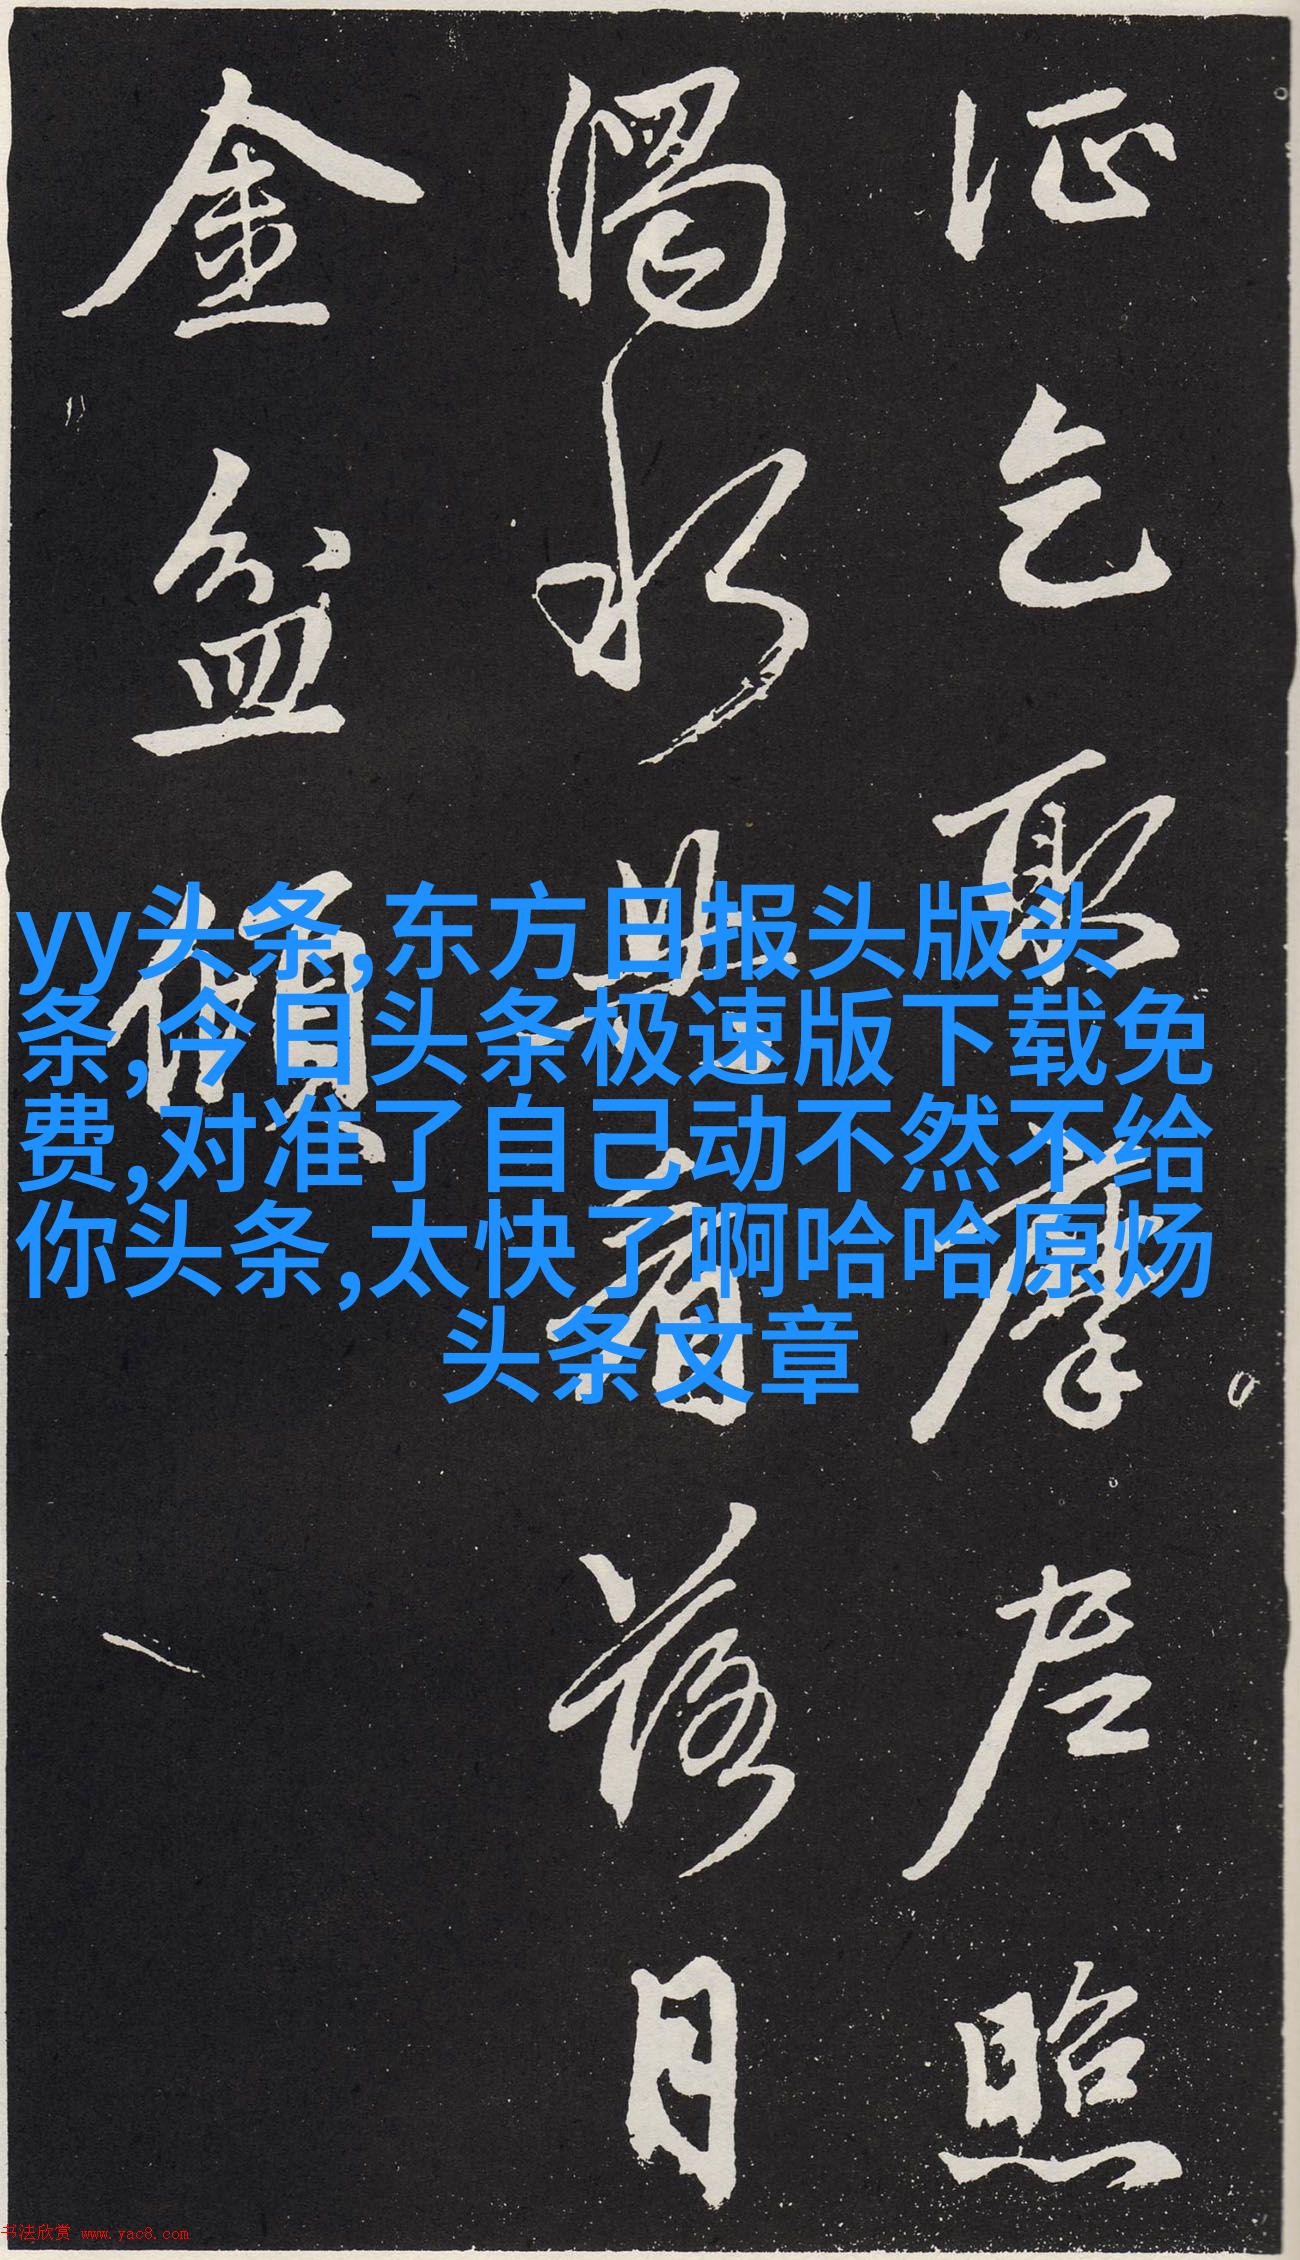 乞聚摩尼照
濁水共看落月
金盆傾
yy头条,东方日报头版头
条,今日头条极速版下载免
费,对准了自己动不然不给
你头条,太快了啊哈哈原炀
头条文章
书法欣赏 www.yac8.com